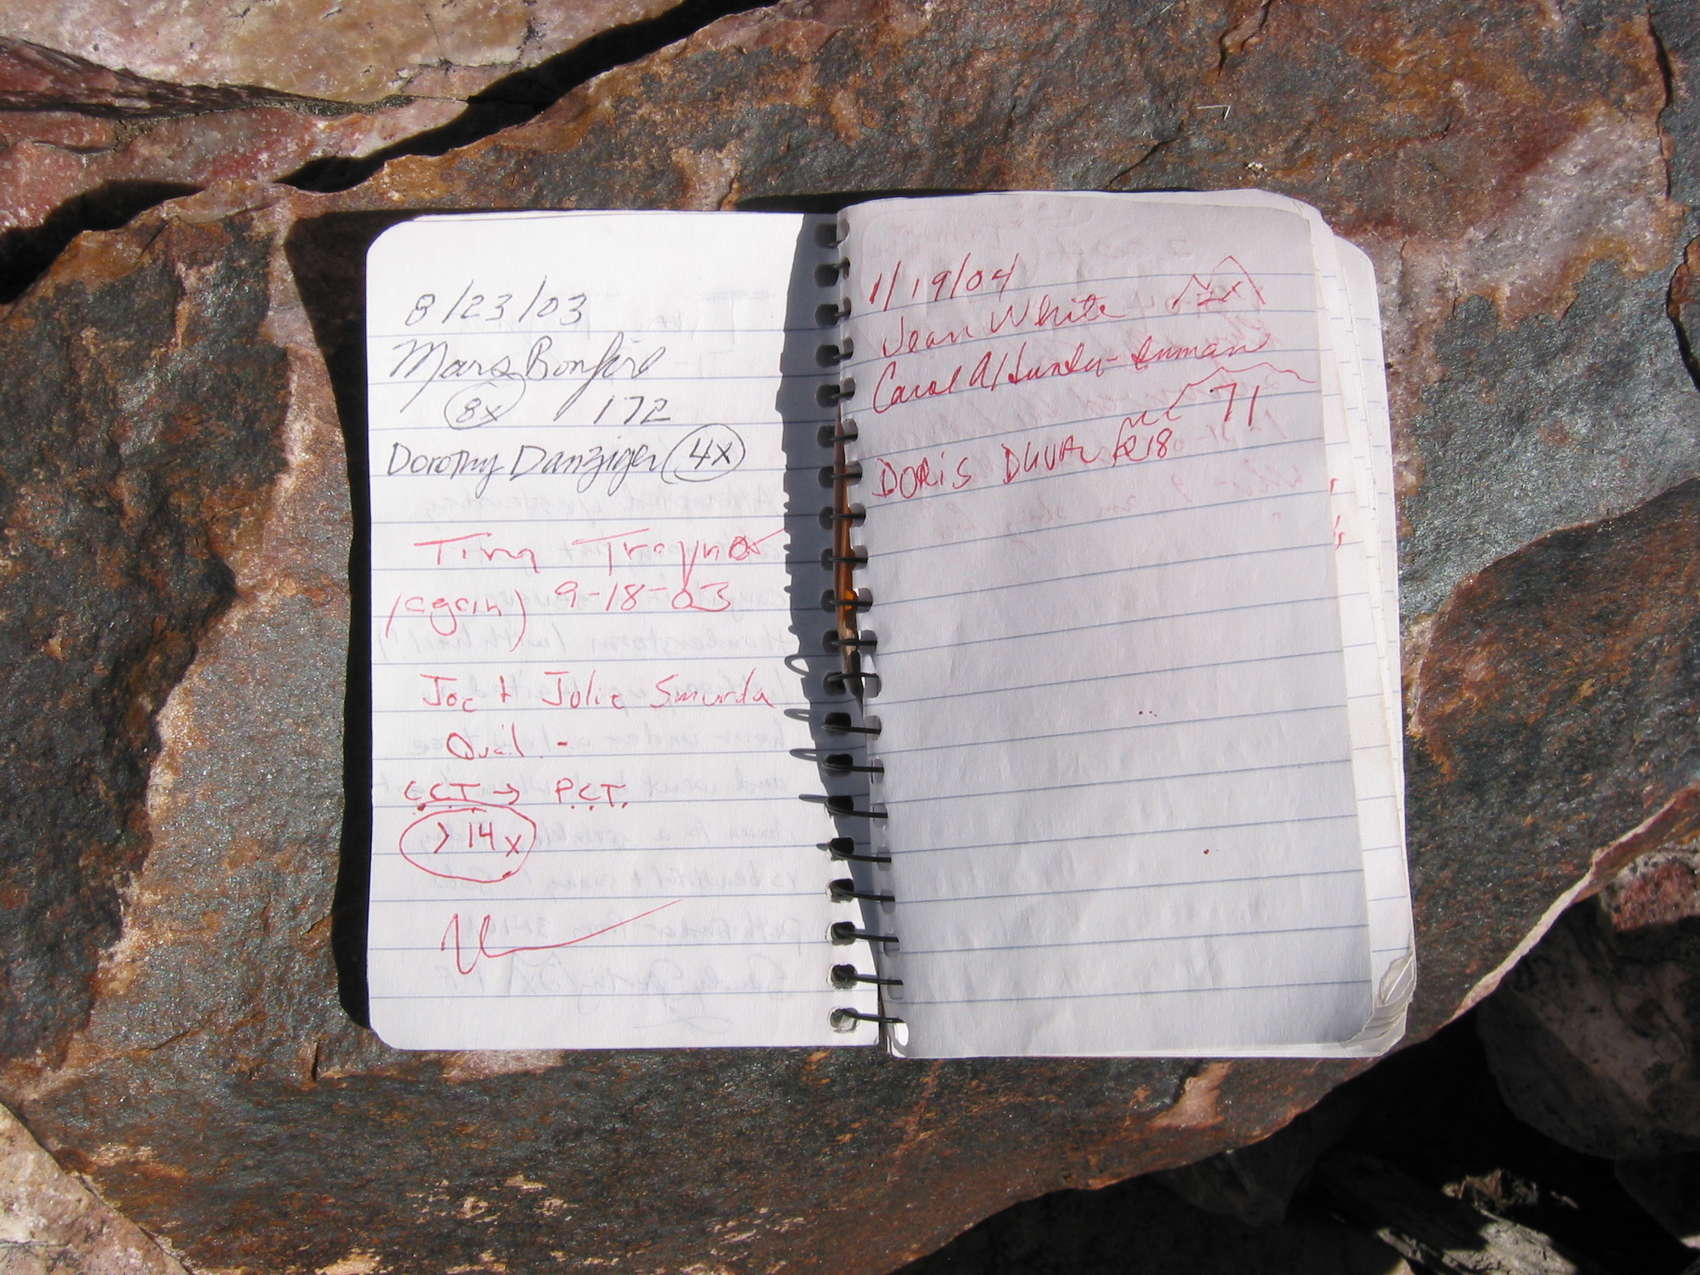 8/23/03
Mars Bonfire
8x 172
Dorothy Danziger 4x
Tina Traynor
(again) 9-18-03
Joe + Julie Smurda
Quail -
C.C.T → P.C.T.
>14x
1/19/04
Jean White 2x
Carol A
71
DORIS DUVAL 18